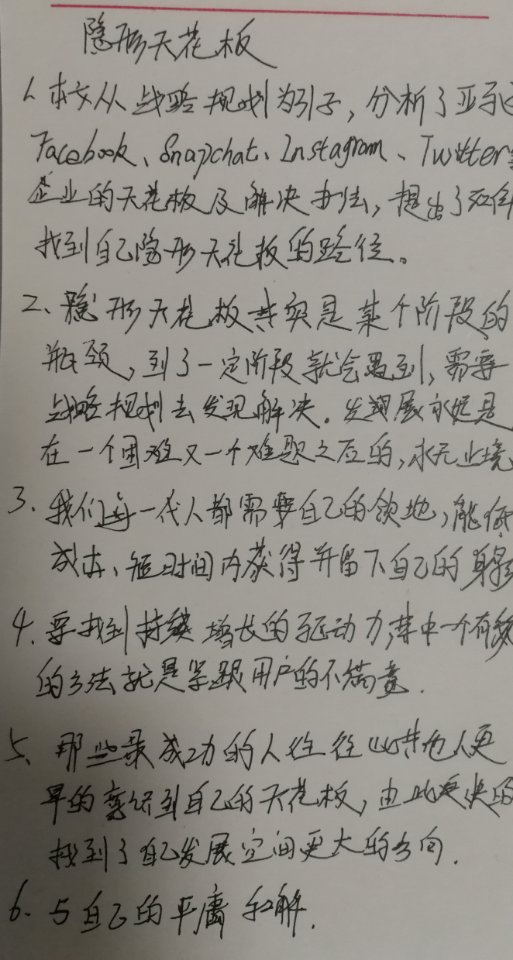 隐形天花板
1、本文从战略规划为引子，分析了亚马逊
Facebook、Snapchat、Instagram、Twitter等
企业的天花板及解决办法，提出了如何
找到自己隐形天花板的路径。
2、隐形天花板其实是某个阶段的
瓶颈，到了一定阶段就会遇到，需要
战略规划去发现解决。发展永远是
在一个困难又一个难题之后的，永无止境
3、我们每一代人都需要自己的领地，能低
成本、短时间内获得并留下自己的身影
4、要找到持续增长的驱动力，其中一个有效
的方法就是紧跟用户的不满意.
5、那些最成功的人往往比其他人更
早的察觉到自己的天花板，由此更快的
找到了自己发展空间更大的方向.
6、与自己的平庸和解.